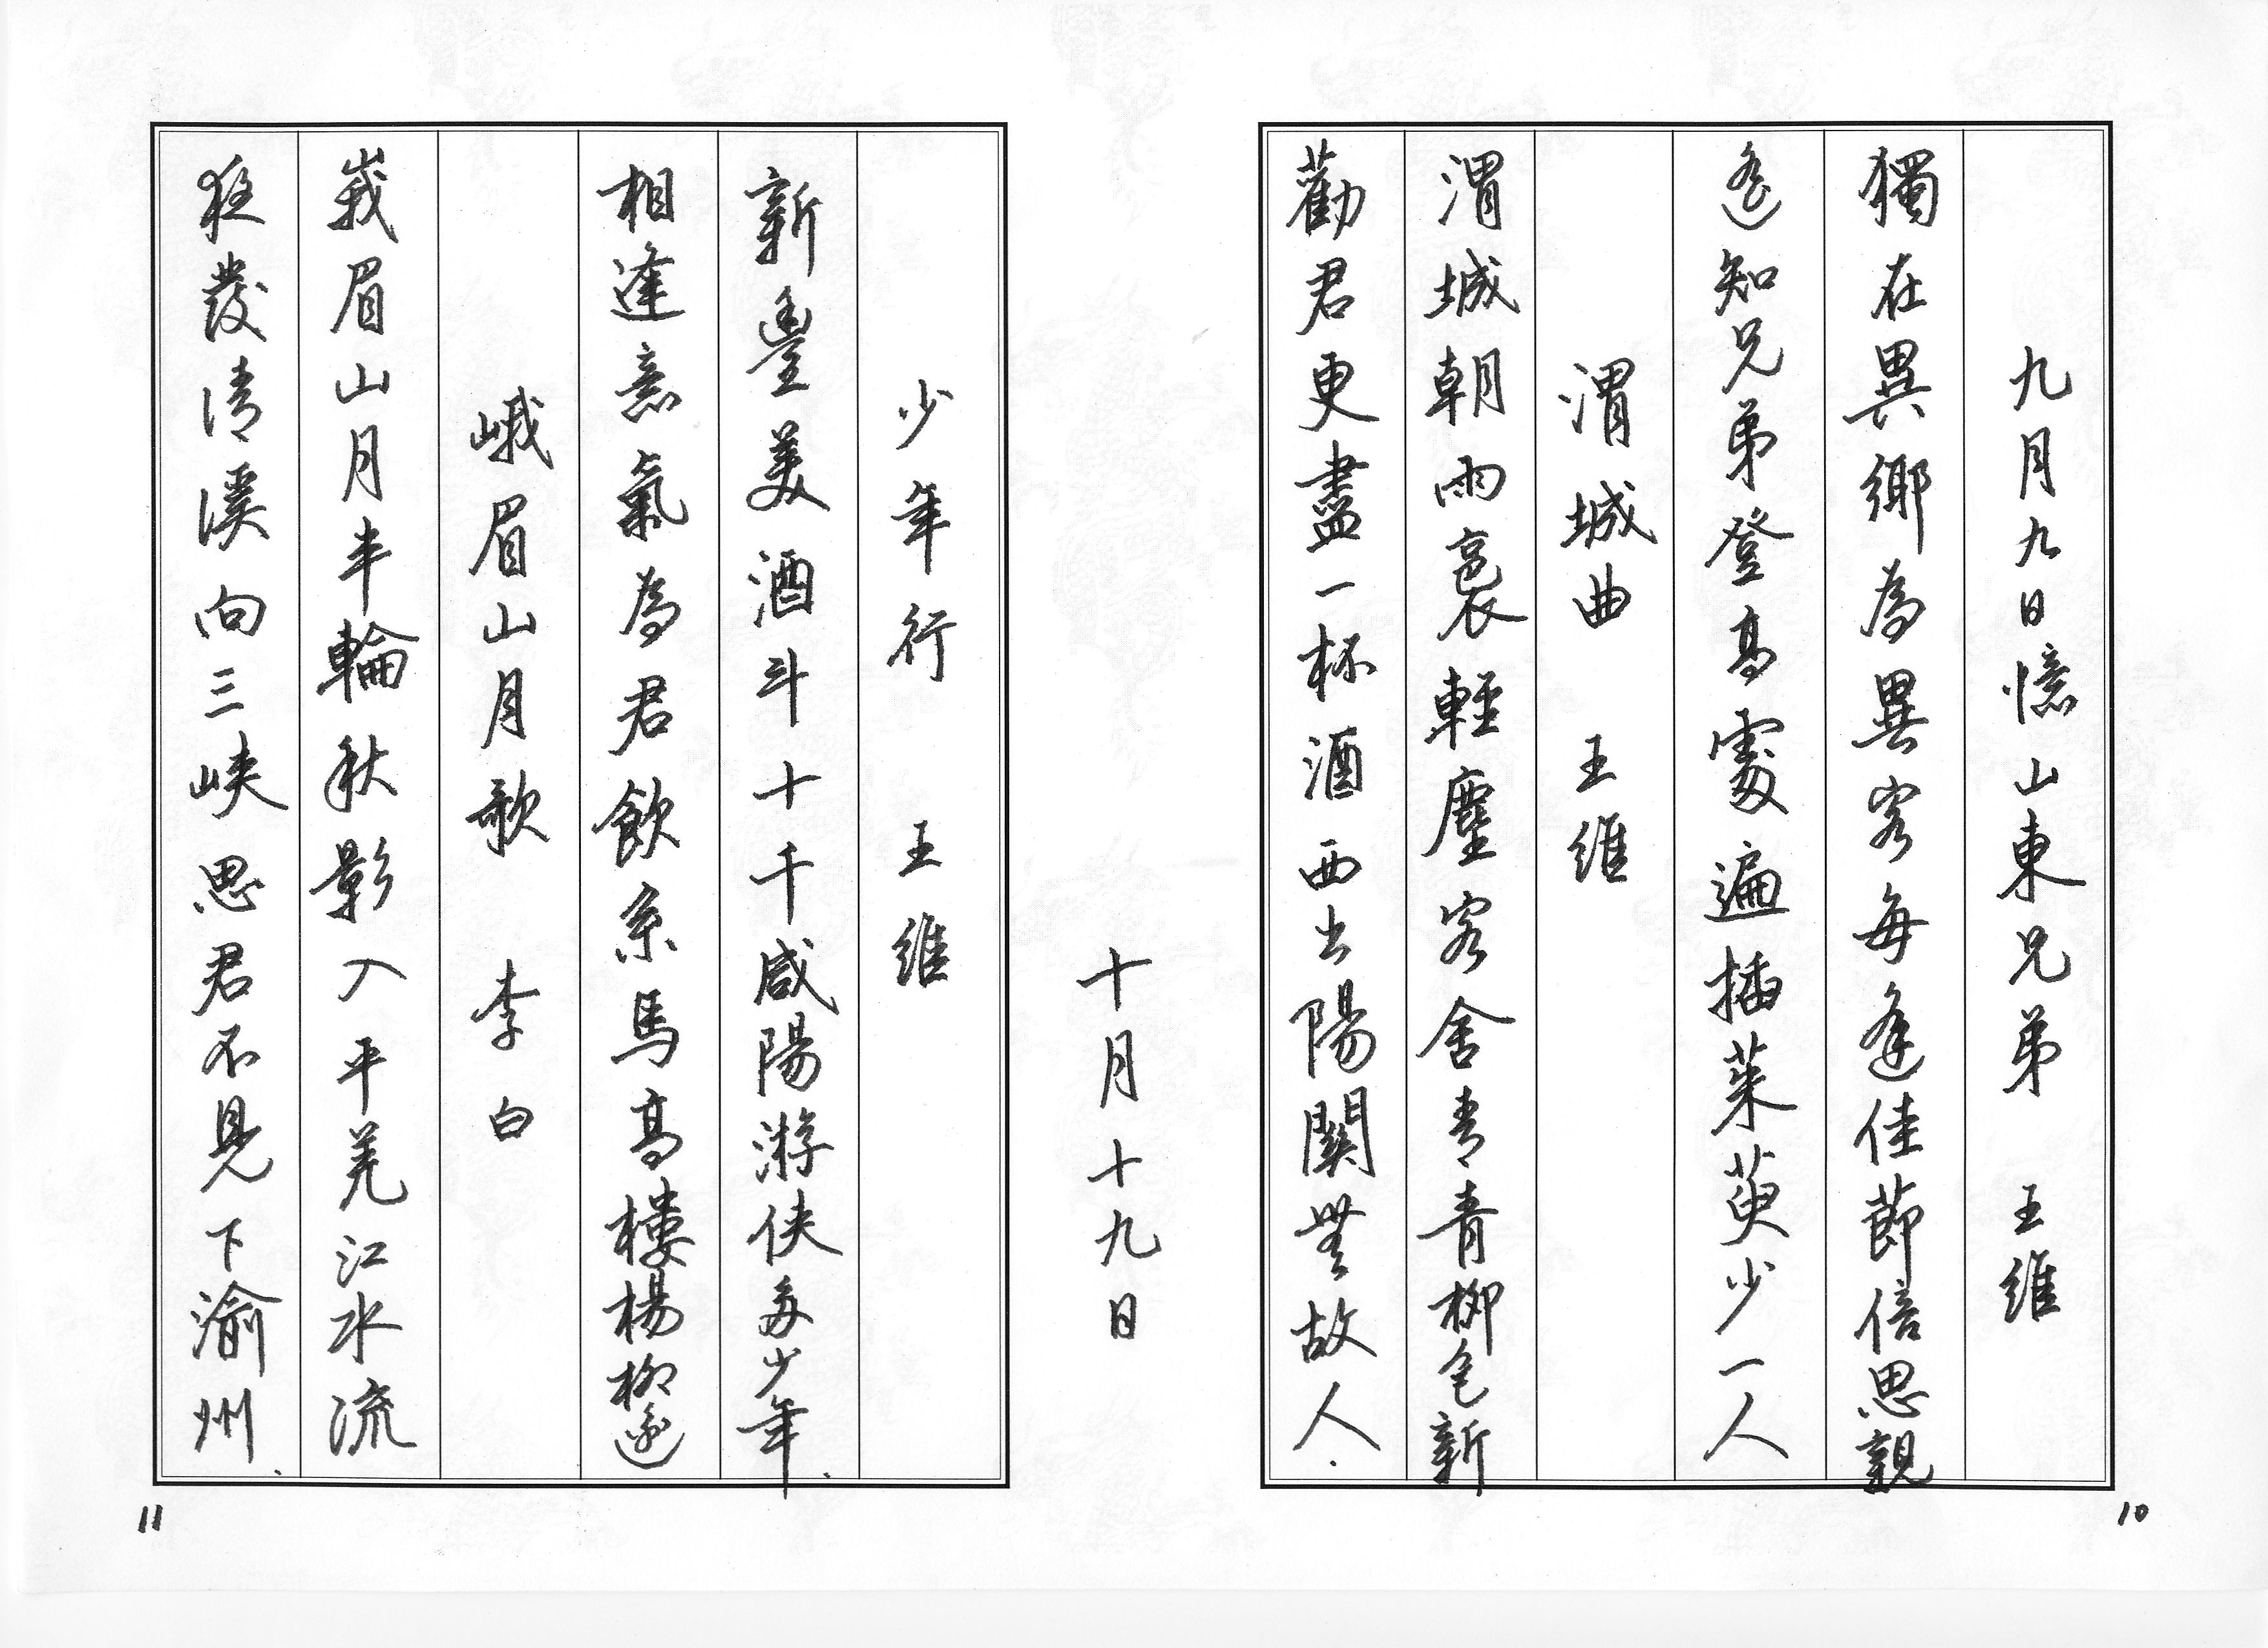 九月九日憶山東兄弟 王維
獨在異鄉為異客每逢佳節倍思親
遙知兄弟登高處遍插茱萸少一人
渭城曲 王維
渭城朝雨裛輕塵客舍青青柳色新
勸君更盡一杯酒西出陽關無故人.
10
十月十九日
少年行 王維
新豐美酒斗十千咸陽游俠多少年.
相逢意氣為君飲系馬高樓楊柳邊
峨眉山月歌 李白
峩眉山月半輪秋影入平羌江水流
發清溪向三峽思君不見下渝州.
11